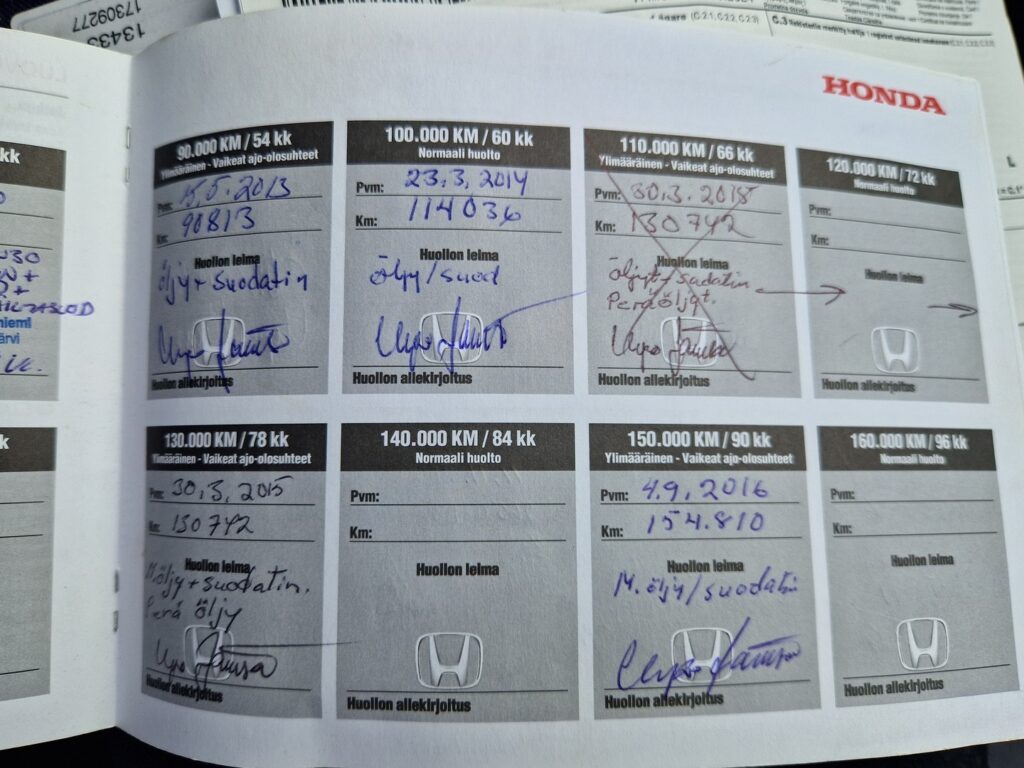 17309277
13433
HONDA
kk
90.000 KM / 54 kk
Ylimääräinen - Vaikeat ajo-olosuhteet
Pvm: 15.5.2013
Km: 90813
Huollon leima
öljy + suodatin
Huollon allekirjoitus
100.000 KM / 60 kk
Normaali huolto
Pvm: 23.3.2014
Km: 114036
Huollon leima
öljy/suod
Huollon allekirjoitus
110.000 KM / 66 kk
Ylimääräinen - Vaikeat ajo-olosuhteet
Pvm: 30.3.2015
Km: 130742
Huollon leima
Perä öljyt.
Huollon allekirjoitus
120.000 KM / 72 kk
Normaali huolto
Pvm:
Km:
Huollon leima
Huollon allekirjoitus
130.000 KM / 78 kk
Ylimääräinen - Vaikeat ajo-olosuhteet
Pvm: 30.3.2015
Km: 130742
Huollon leima
M.öljy + suodatin.
Perä öljy
Huollon allekirjoitus
140.000 KM / 84 kk
Normaali huolto
Pvm:
Km:
Huollon leima
Huollon allekirjoitus
150.000 KM / 90 kk
Ylimääräinen - Vaikeat ajo-olosuhteet
Pvm: 4.9.2016
Km: 154.810
Huollon leima
M.öljy/suodatin
Huollon allekirjoitus
160.000 KM / 96 kk
Normaali huolto
Pvm:
Km:
Huollon leima
Huollon allekirjoitus